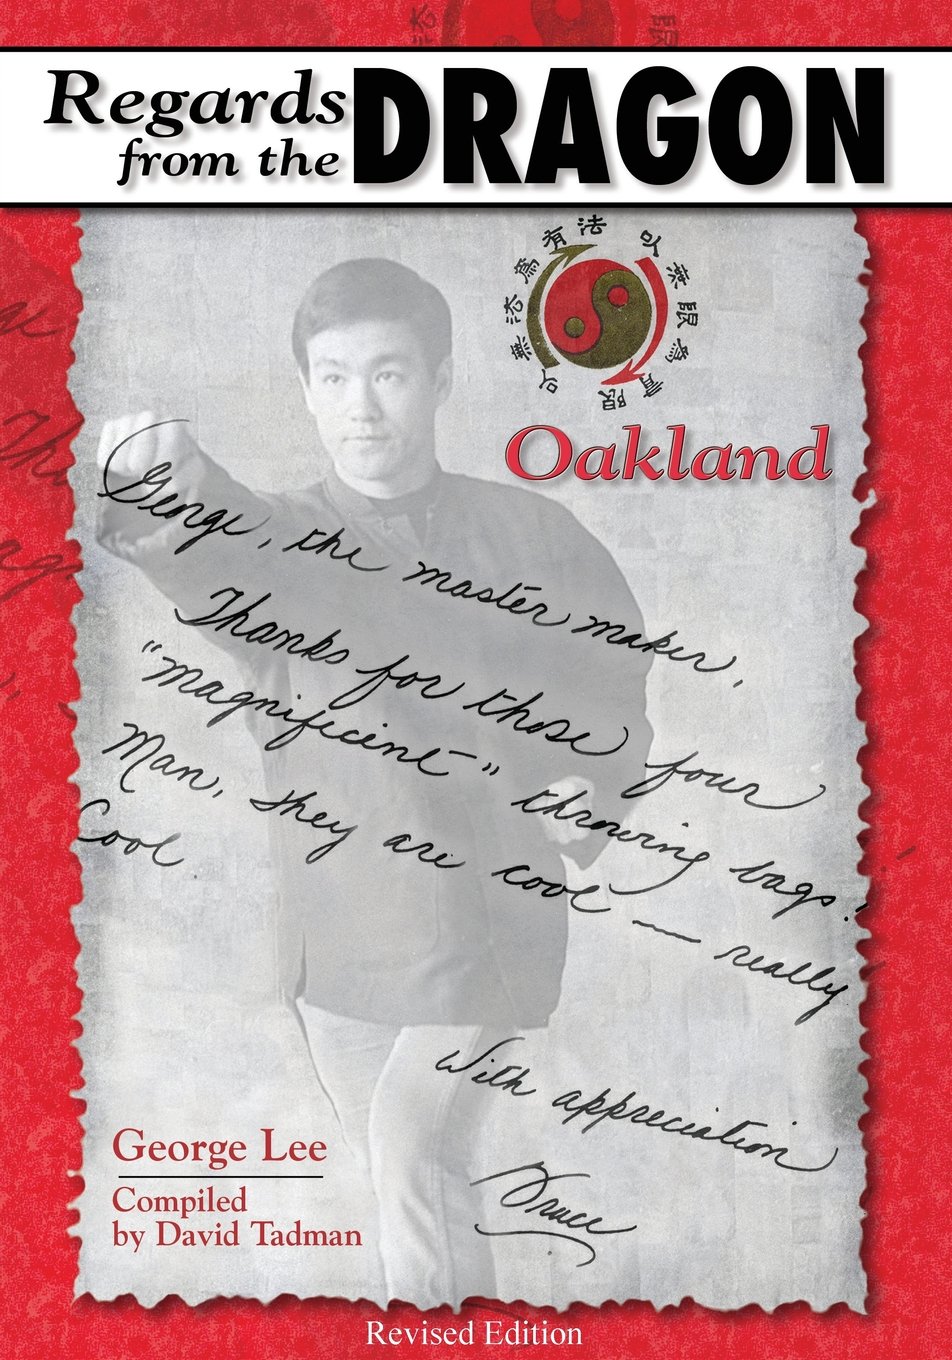 Regards
from the
DRAGON
以無法為有法
以無限為有限
Oakland
George, the master maker,
Thanks for those four
"magnificent" throwing bags!
Man, they are cool — really
Cool
With appreciation
Bruce
George Lee
Compiled
by David Tadman
Revised Edition